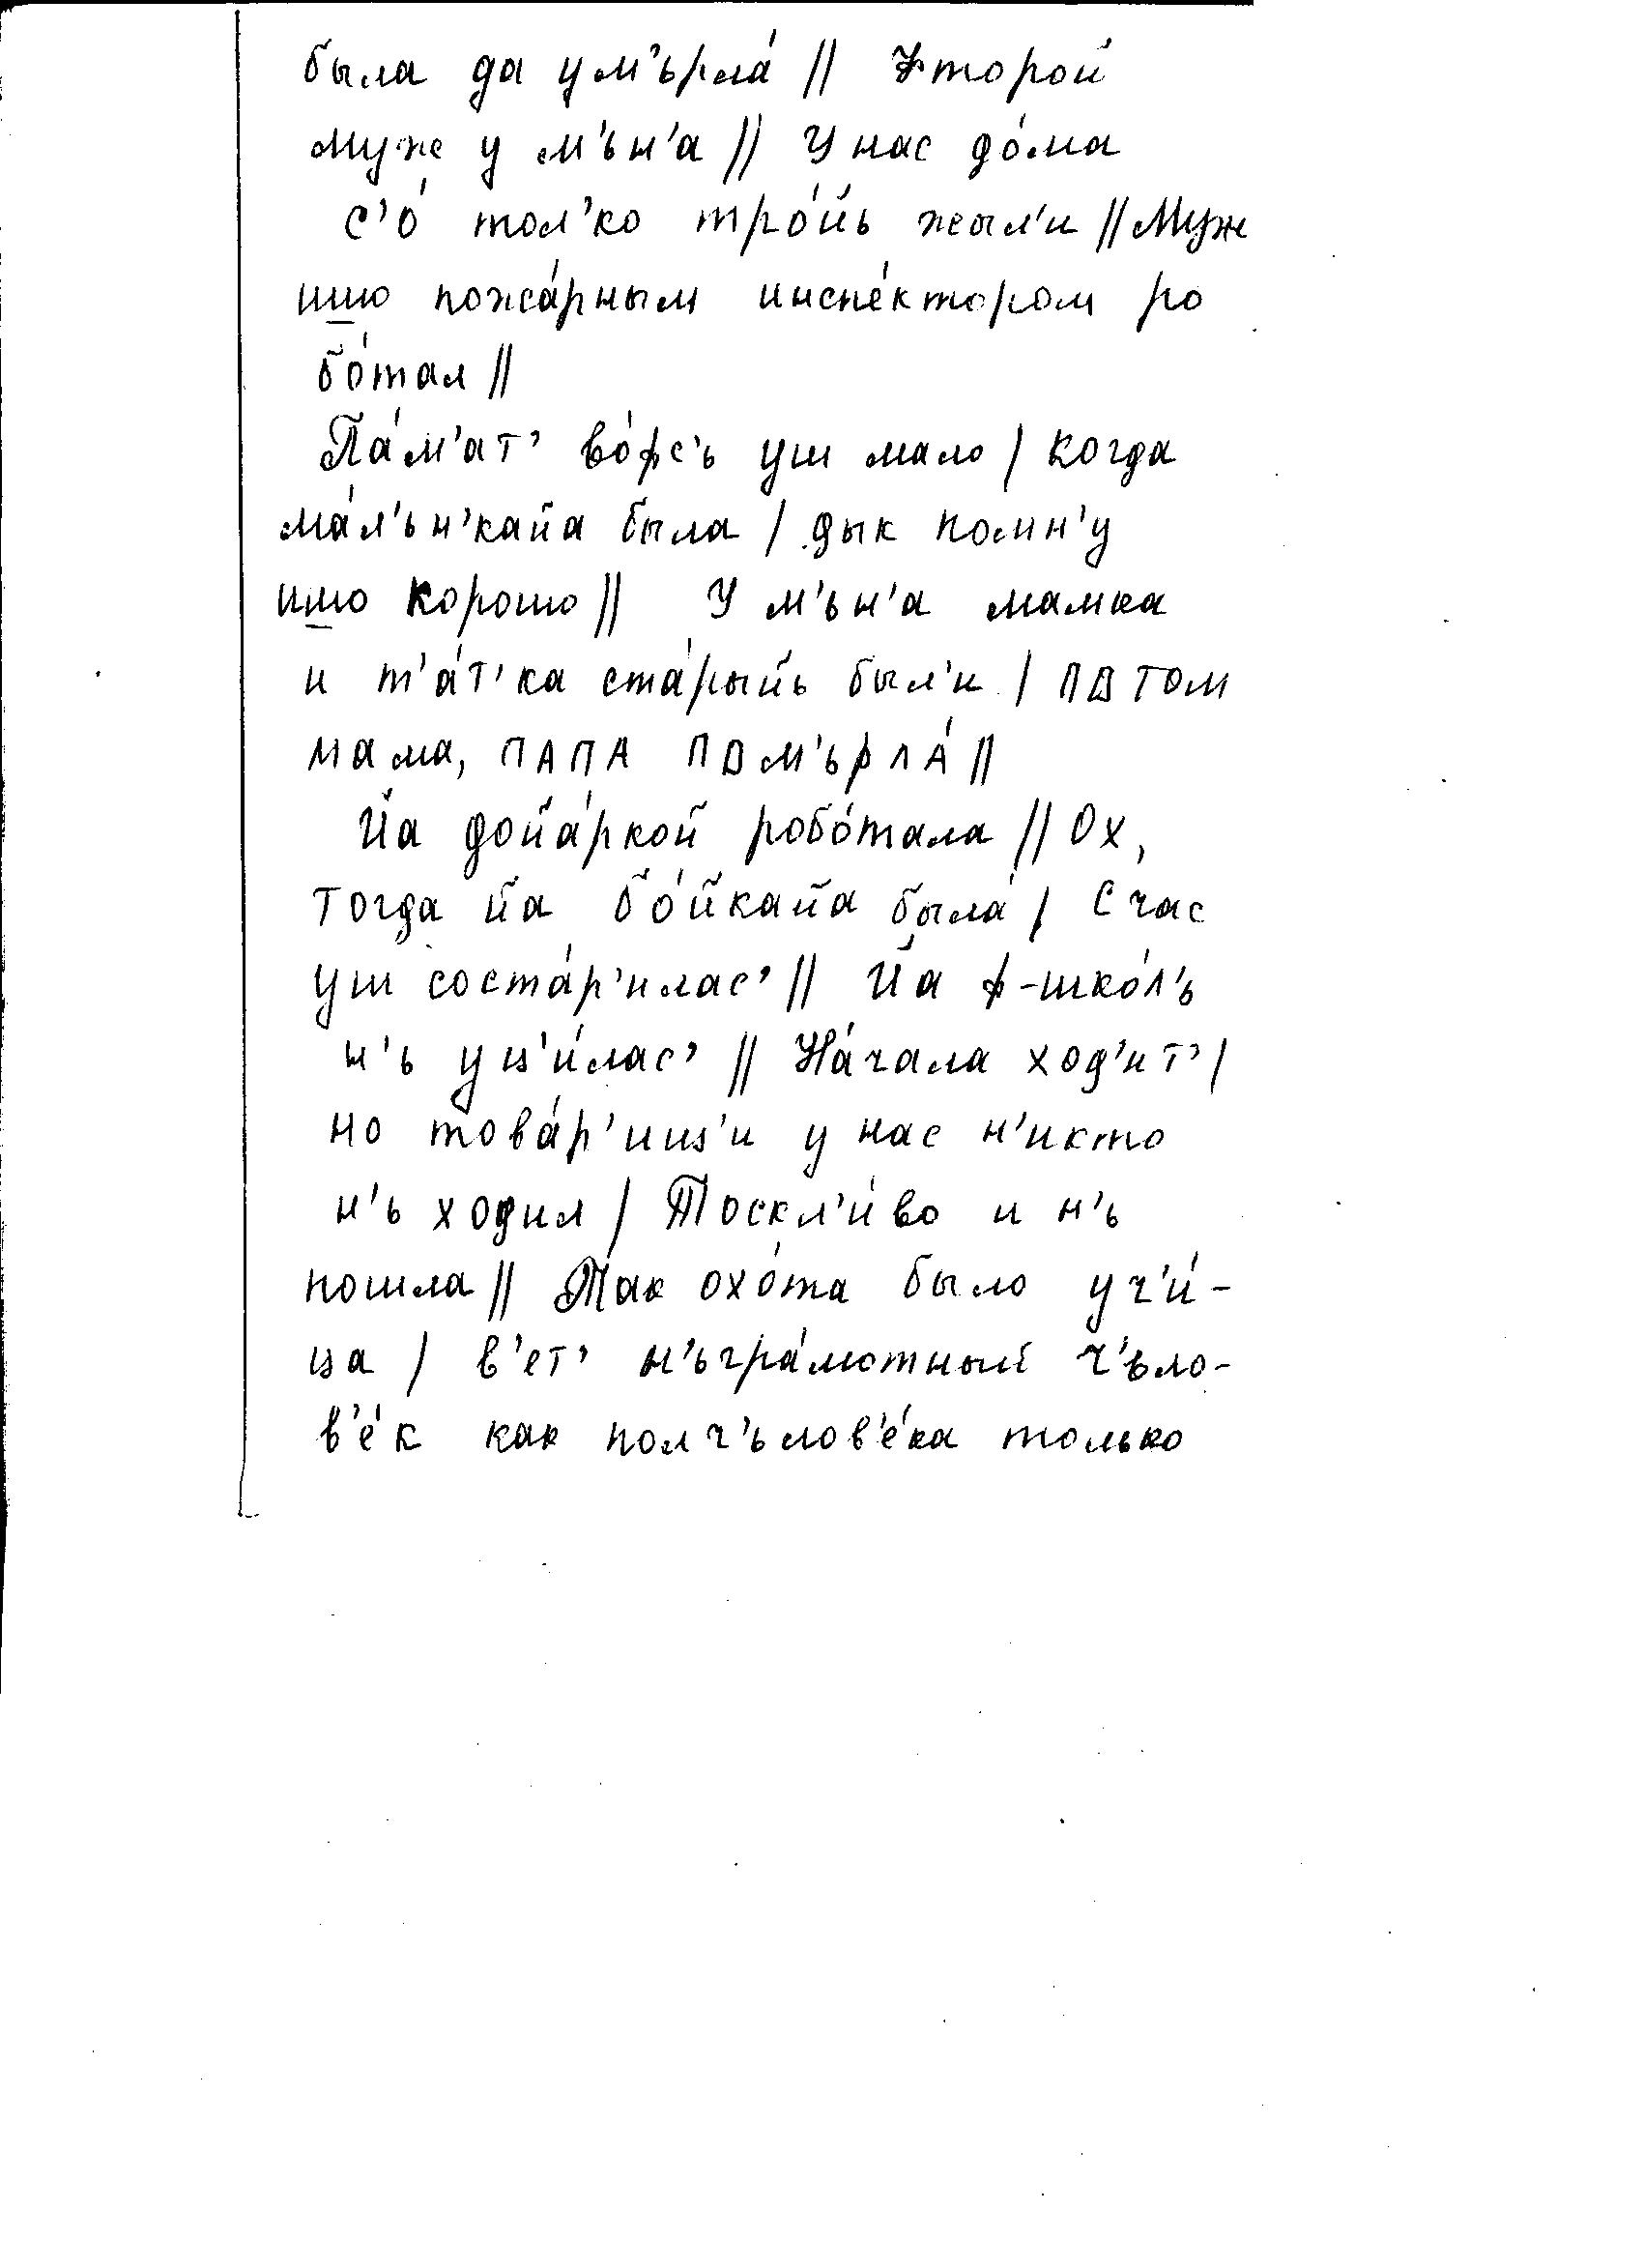 была да ум'ърла́ // Фторой
муж у м'ън'а // У нас до́ма
с'о́ тол'ко тро́йь жыл'и // Муж
ишо пожа́рным инспе́ктором ро
бо́тал //
Па́м'ат' во́фс'ь уш мало / когда
ма́л'ън'кайа была / дык помн'у
ишо хорошо // У м'ън'а мамка
и т'а́т'ка ста́рыйь был'и / ПΔТОМ
мама, ПАПА ПΔМ'ърЛА́ //
Йа дойа́ркой робо́тала // Ох,
тогда йа бо́йкайа была́ / Счас
уш соста́р'илас' // Йа ф-шко́л'ь
н'ь уц'и́лас' // На́чала ход'ит' /
но това́р'ищ'и у нас н'икто
н'ь ходил / Тоскл'и́во и н'ь
пошла // Так охо́та было уч'и́-
ца / в'ет' н'ьгра́мотный ч'ъло-
в'е́к как полч'ълов'е́ка только